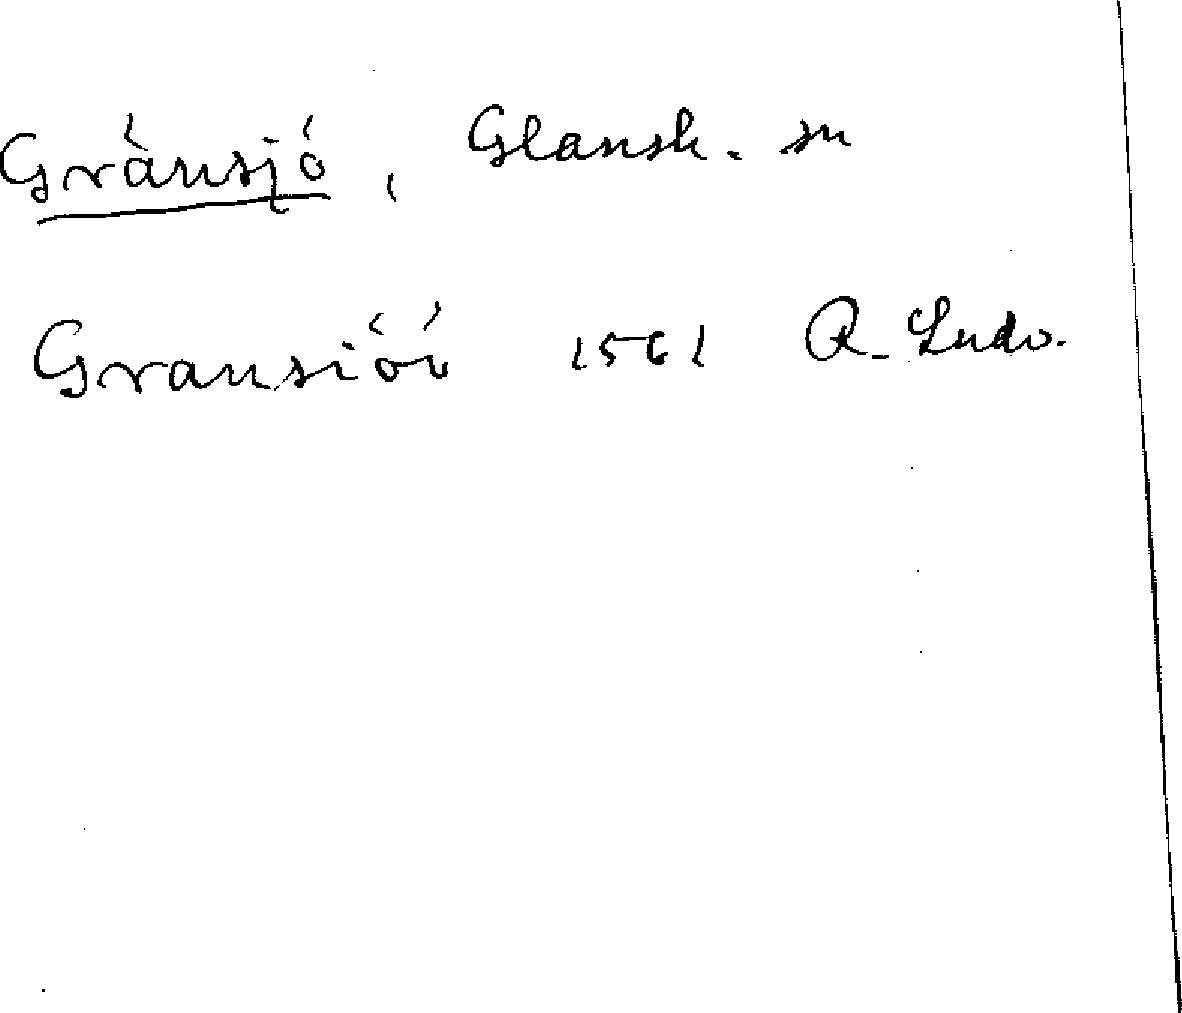 Gränsjö, Glansh. sn
Gransiöö 1561 R. Ludv.